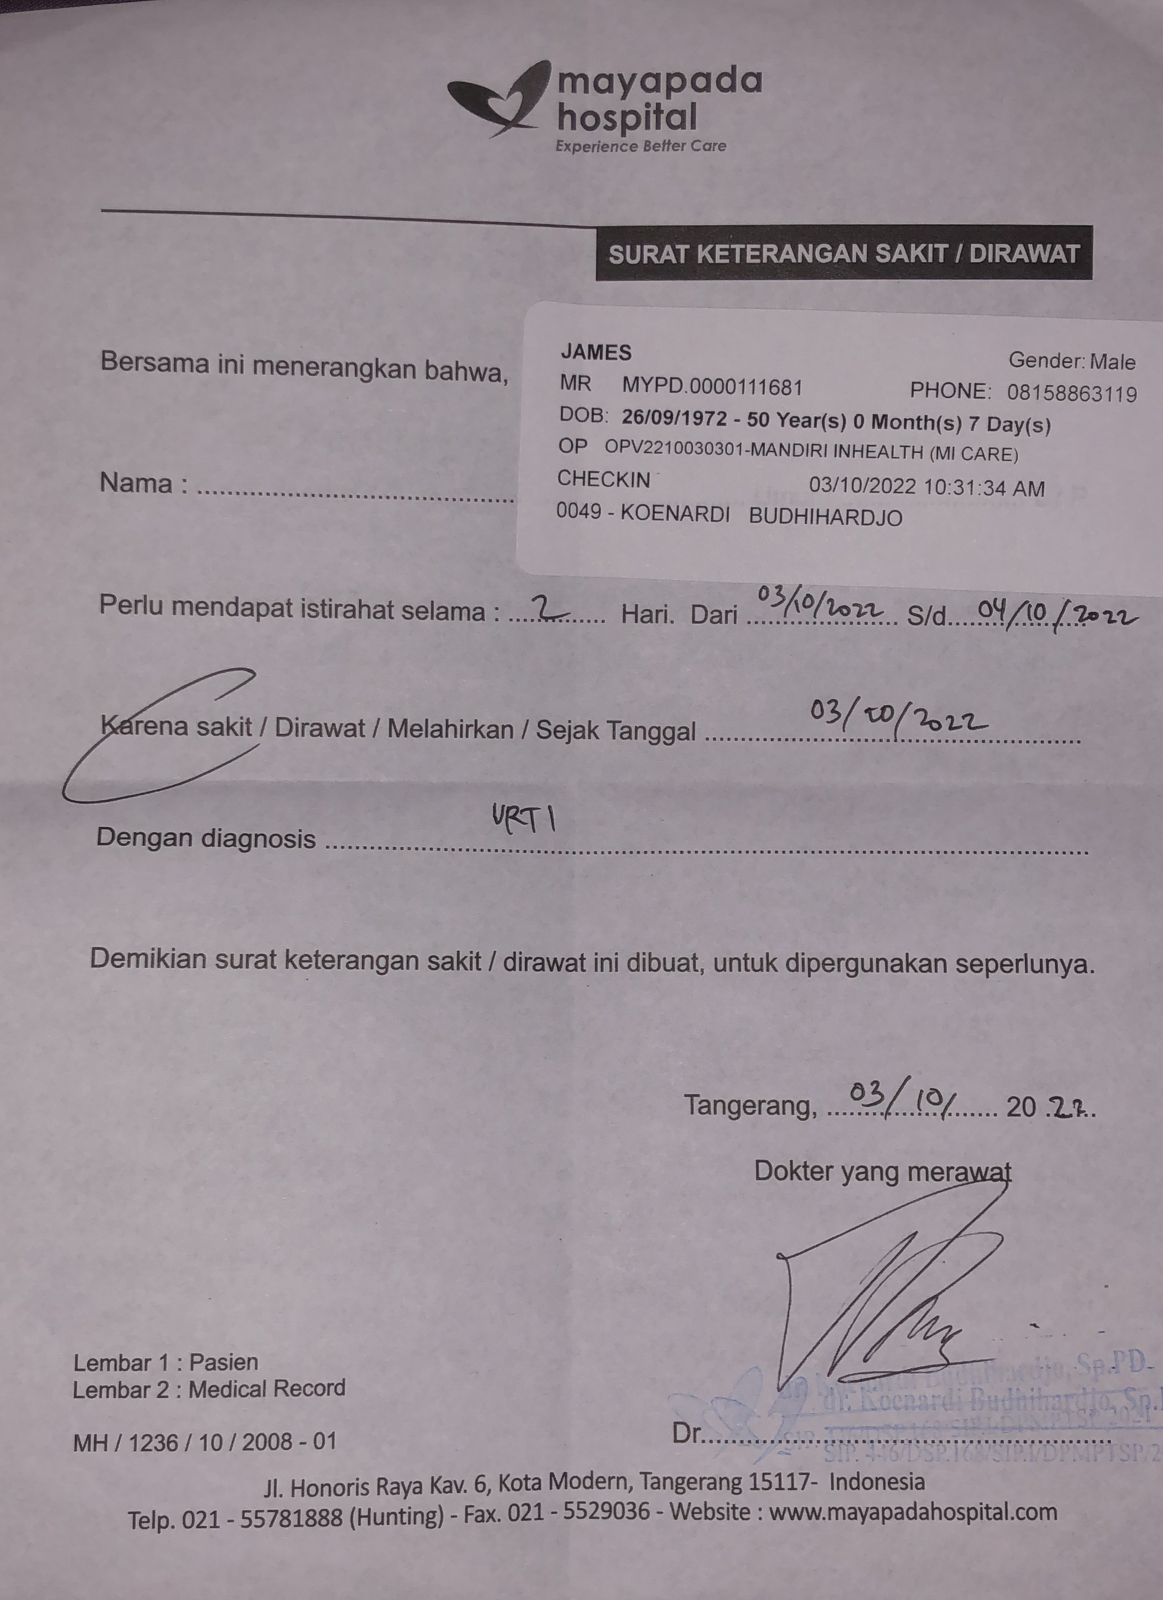 mayapada
hospital
Experience Better Care
SURAT KETERANGAN SAKIT / DIRAWAT
Bersama ini menerangkan bahwa,
JAMES Gender: Male
MR MYPD.0000111681 PHONE: 08158863119
DOB: 26/09/1972 - 50 Year(s) 0 Month(s) 7 Day(s)
OP OPV2210030301-MANDIRI INHEALTH (MI CARE)
CHECKIN 03/10/2022 10:31:34 AM
0049 - KOENARDI BUDHIHARDJO
Nama : ........................................
Perlu mendapat istirahat selama : ...2...... Hari. Dari 03/10/2022 S/d....04/10/2022
Karena sakit / Dirawat / Melahirkan / Sejak Tanggal 03/10/2022
Dengan diagnosis URTI
Demikian surat keterangan sakit / dirawat ini dibuat, untuk dipergunakan seperlunya.
Tangerang, 03/10/ 20 .22..
Dokter yang merawat
Lembar 1 : Pasien
Lembar 2 : Medical Record
dr. Koenardi Budhihardjo, Sp.
Dr.
MH / 1236 / 10 / 2008 - 01
Jl. Honoris Raya Kav. 6, Kota Modern, Tangerang 15117- Indonesia
Telp. 021 - 55781888 (Hunting) - Fax. 021 - 5529036 - Website : www.mayapadahospital.com